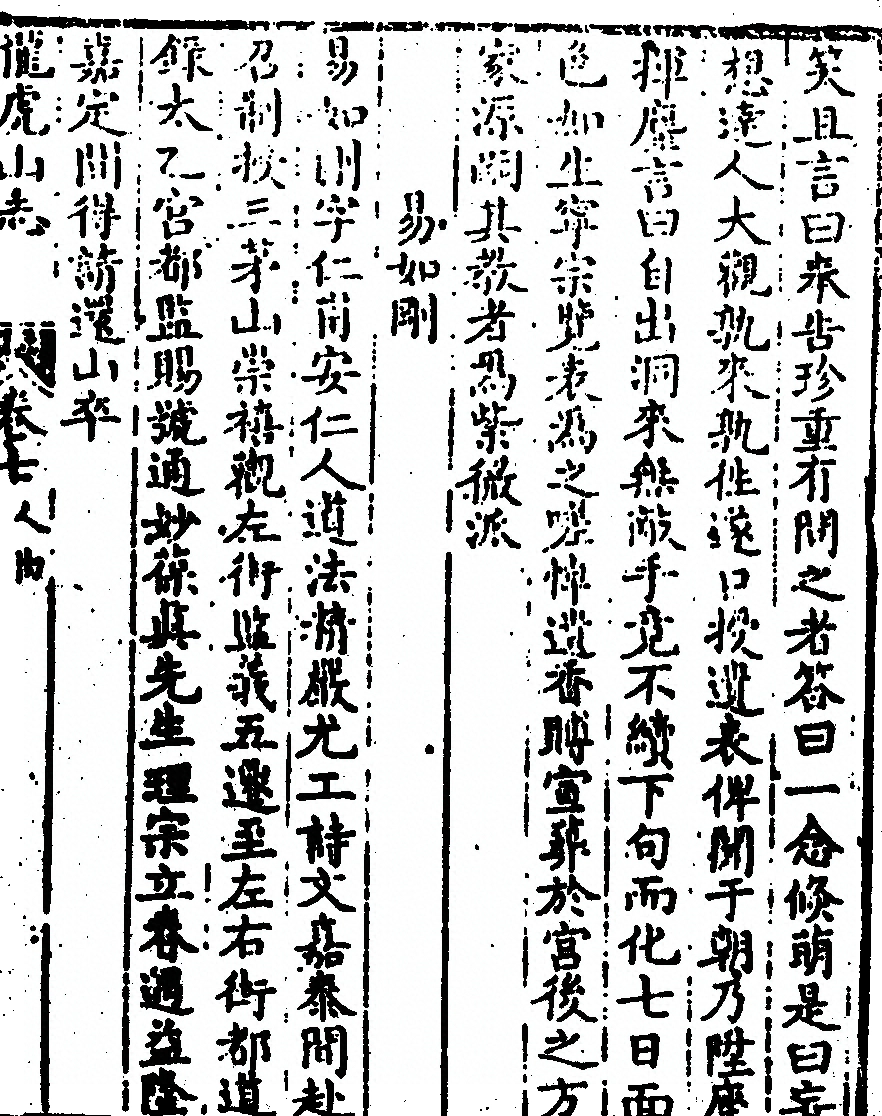 笑且言曰來告珍重有問之者答曰一念倐萌是曰妄
想達人大觀孰來孰徃遂口授遺表俾聞于朝乃陞座
揮麈言曰自出洞來無敵手竟不續下句而化七日面
色如生寧宗覽表爲之嗟悼遺香賻宣葬於宫後之方
家源嗣其教者爲紫微派
易如剛
易如剛字仁甫安仁人道法精嚴尤工詩文嘉泰間赴
召制授三茅山崇禧觀左街監義五遷至左右街都道
錄太乙宮都監賜號通妙葆真先生理宗立春遇益隆
嘉定間得請還山卒
龍虎山志 卷七人物